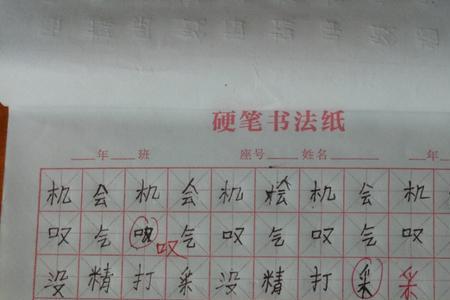 硬笔书法纸
___年___班 座号___姓名___ ___年
机会机会机机会机
叹气叹气叹气叹气叹
叹
没精打采没精打采采